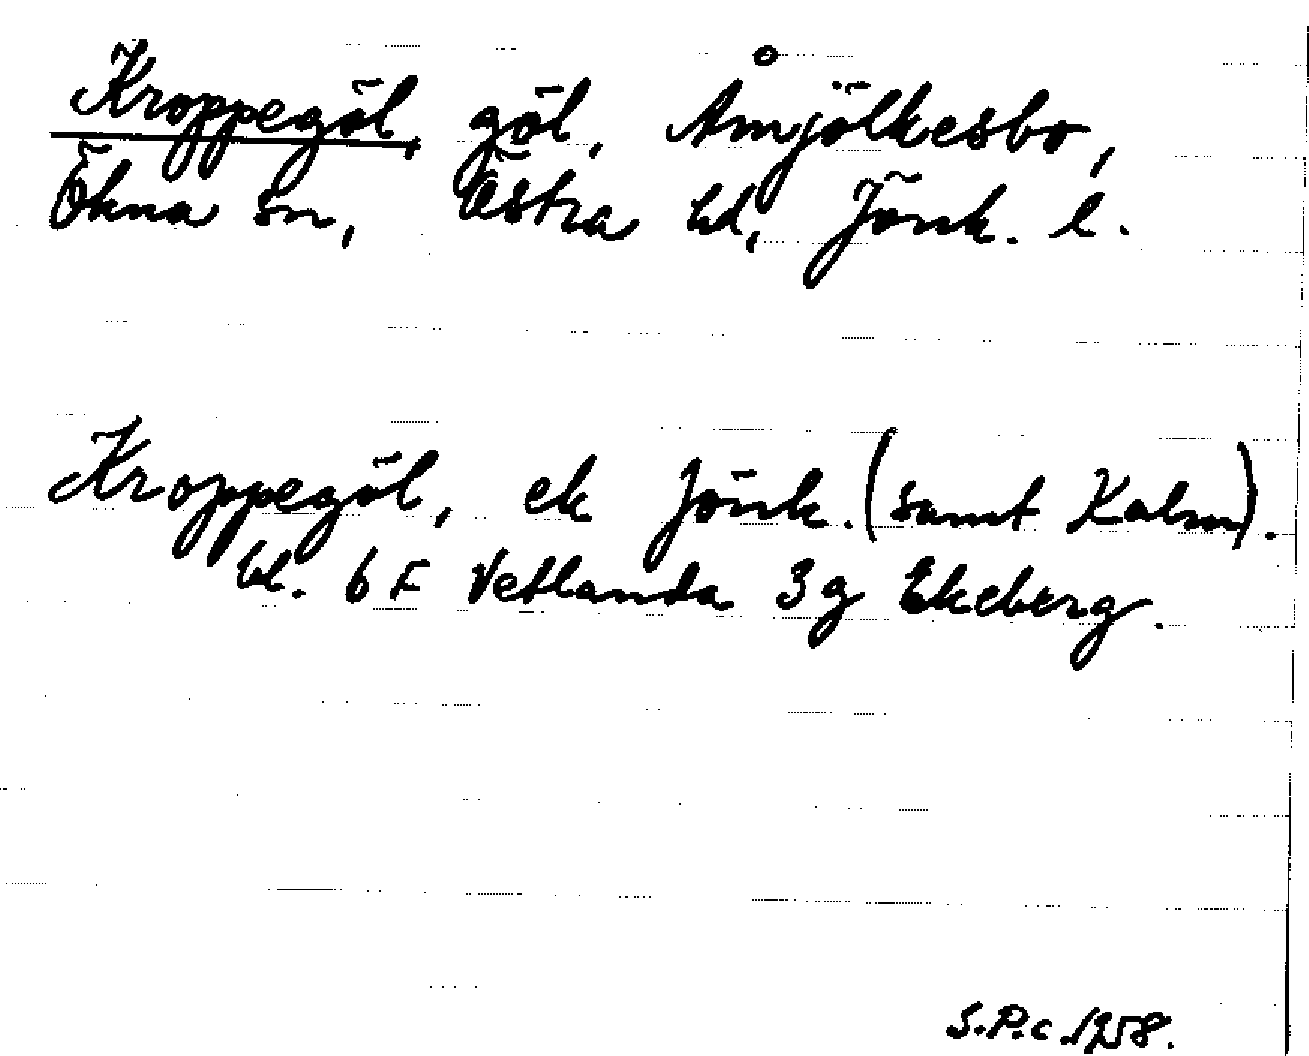 Kroppegöl, göl, Åmjölkesbo,
Ökna sn, Östra hd, Jönk. l.
Kroppegöl, ek Jönk. (samt Kalm).
bl. 6 F Vetlanda 3g Ekeberg.
S.P.c 1958.